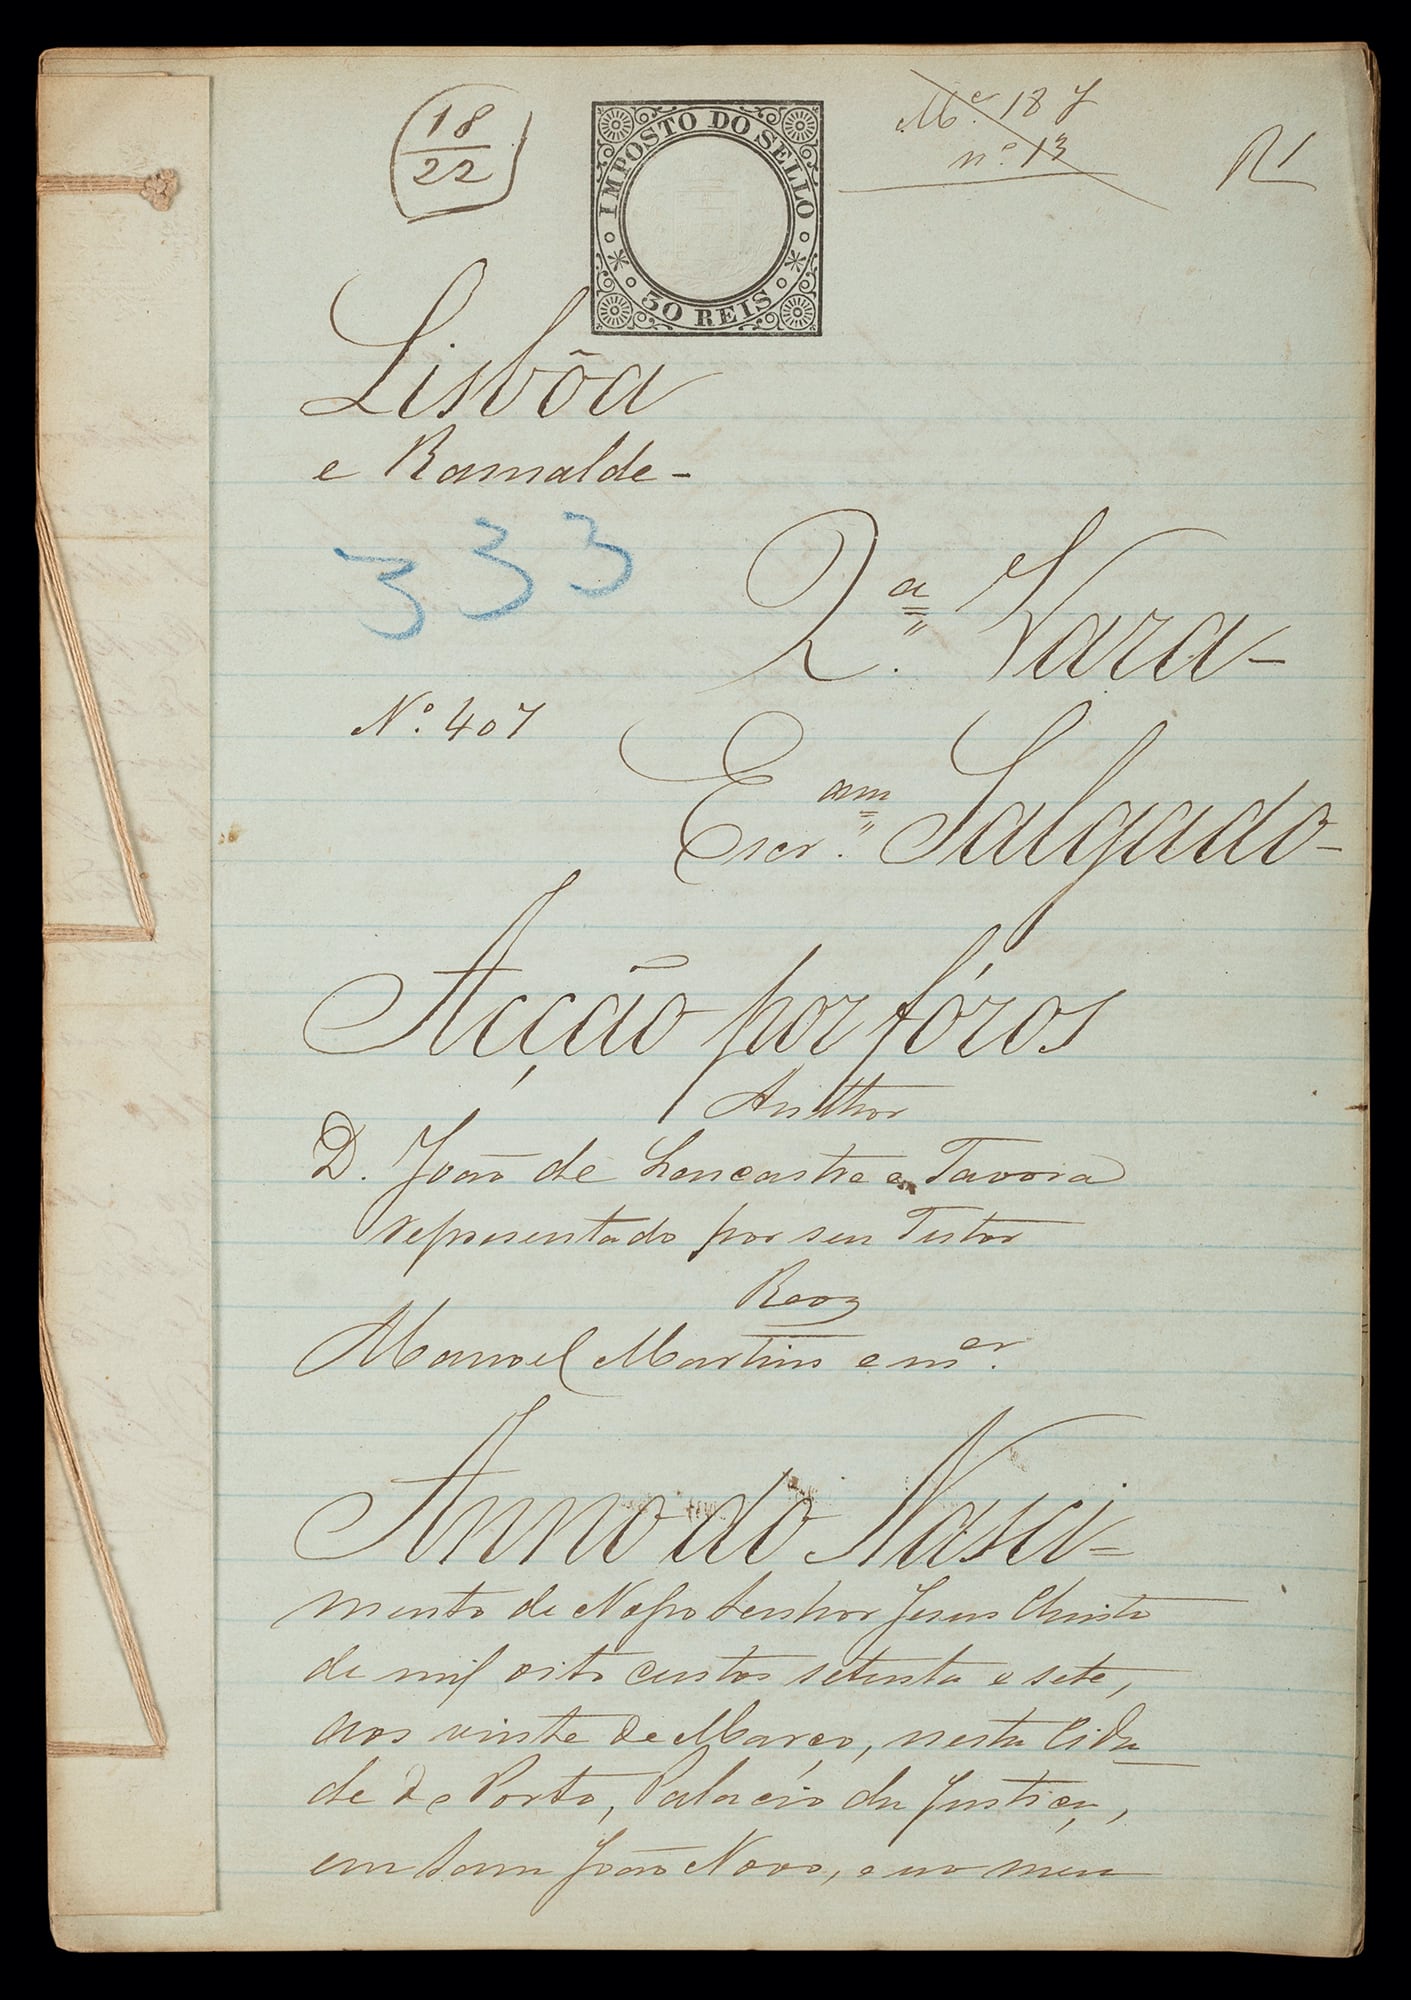 18
22
IMPOSTO DO SELLO
30 REIS
Mº. 18 J
nº 13
R1
Lisbôa
e Ramalde -
333
2.ª Vara -
Nº. 407
Escr.am Salgado -
Acção por fóros
Author
D. João de Lencastre e Tavora
representado por seu Tutor
Reos
Manoel Martins e m.er
Anno do Nasci=
mento de Nosso Senhor Jesus Christo
de mil oito centos setenta e sete,
aos vinte de Março, nesta Cida
de do Porto, Palacio da Justiça,
em Sam João Novo, e no meu